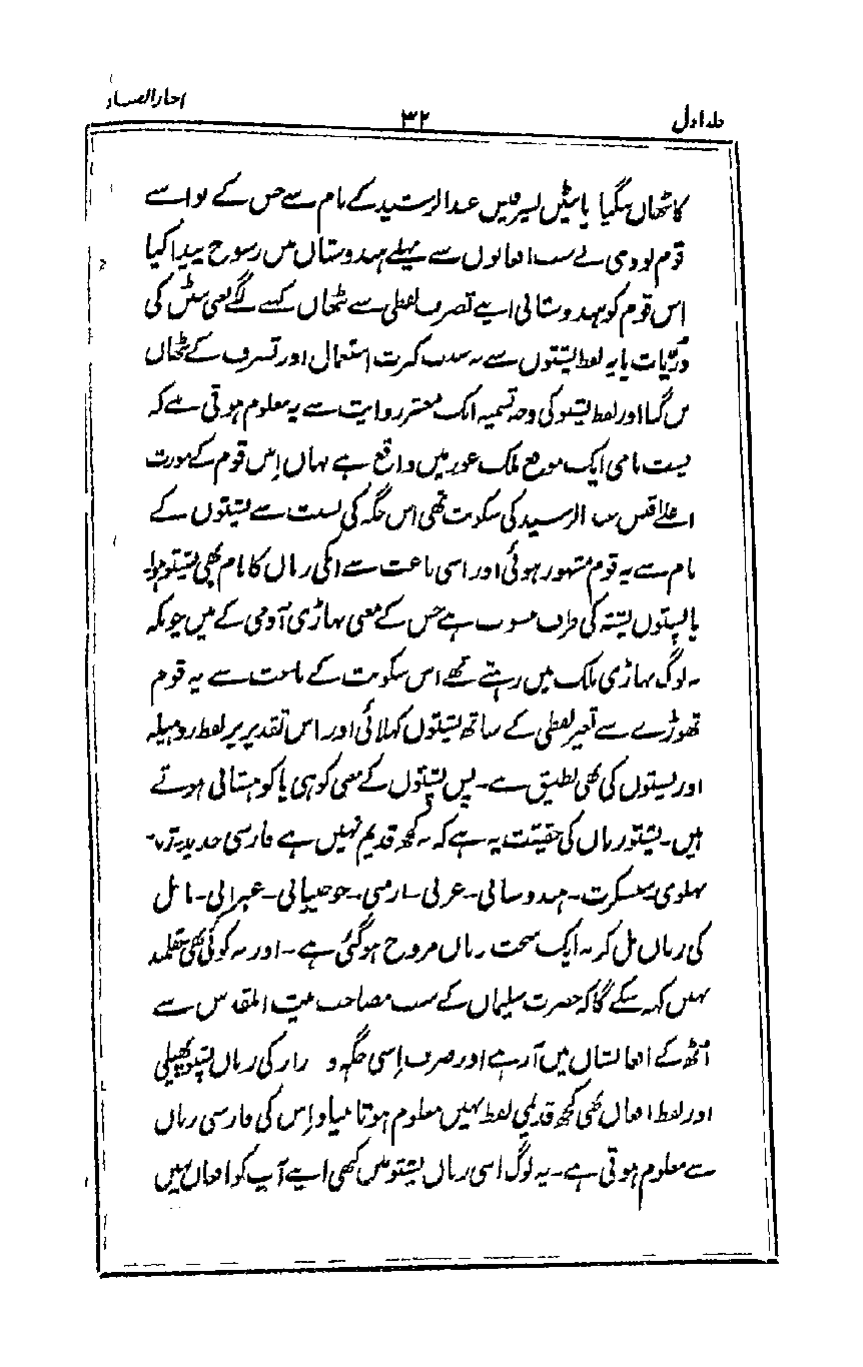 جلد اول
۳۲
اخبار الصنادید
کا ٹھاں بنگیا یا بیٹیں پسر قیس عبدالرشید کے نام سے جس کے نواسے
قوم لودی نے سب افغانوں سے پہلے ہندوستاں میں رسوخ پیدا کیا
اس قوم کو ہندوستانی اپنے تصرف لفظی سے پٹھاں کہنے لگے یعنی بیٹں کی
ذریات یا یہ لفظ پشتوں سے بہ سبب کثرت استعمال اور تصرف کے پٹھاں
بن گیا اور لفظ پشتو کی وجہ تسمیہ ایک معتبر روایت سے یہ معلوم ہوتی ہے کہ
پشت نامی ایک موضع ملک غور میں واقع ہے جہاں اس قوم کے مورث
اعلےٰ قیس عبد الرشید کی سکونت تھی اس جگہ کی نسبت سے پشتوں کے
نام سے یہ قوم مشہور ہوئی اور اسی باعث سے انکی زباں کا نام بھی پشتو ہوا۔
یا پشتوں پشتہ کی طرف منسوب ہے جس کے معنی پہاڑی آدمی کے ہیں چونکہ
یہ لوگ پہاڑی ملک میں رہتے تھے اس سکونت کے باعث سے یہ قوم
تھوڑے سے تغیر لفظی کے ساتھ پشتوں کہلائی اور اس تقدیر پر لفظ روہیلہ
اور پشتوں کی بھی تطبیق ہے۔ پس پشتوں کے معنی کوہی یا کوہستانی ہوتے
ہیں۔ پشتو زباں کی حقیقت یہ ہے کہ یہ کچھ قدیم نہیں ہے فارسی جدید۔
پہلوی سنسکرت۔ ہندوستانی۔ عربی۔ ارمنی۔ عبرانی۔
کی زباں مل کر یہ ایک سخت زباں مروج ہوگئی ہے۔ اور یہ کوئی بھی عقلمند
نہیں کہہ سکے گا کہ حضرت سلیماں کے سب مصاحب بیت المقدس سے
اٹھ کے افغانستاں میں آ رہے اور صرف اسی جگہ و رار کی زباں پشتو پھیلی
اور لفظ افغاں بھی کچھ قدیمی لفظ نہیں معلوم ہوتا بنیاد اس کی فارسی زباں
سے معلوم ہوتی ہے۔ یہ لوگ اسی زباں پشتو میں کبھی اپنے آپ کو افغاں نہیں